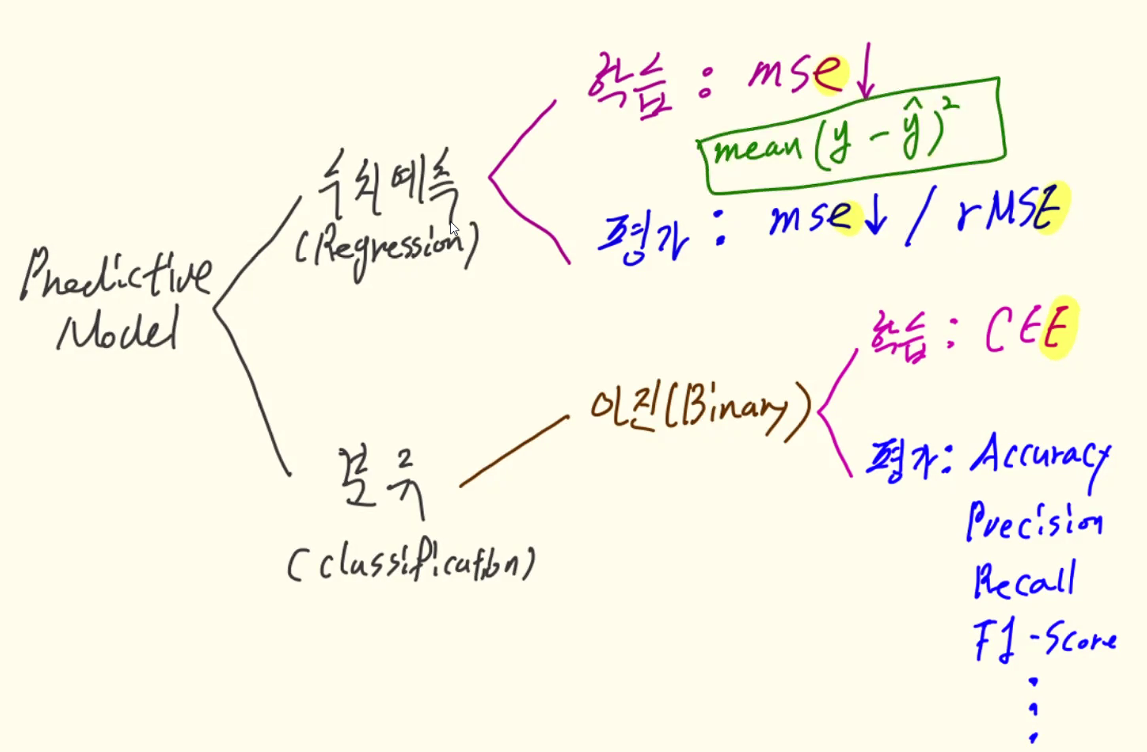 Predictive
Model
수치예측
(Regression)
학습 : mse↓
mean (y - ŷ)²
평가 : mse↓ / rMSE
분류
(classification)
이진(Binary)
학습 : CEE
평가 : Accuracy
Precision
Recall
F1-Score
⋮